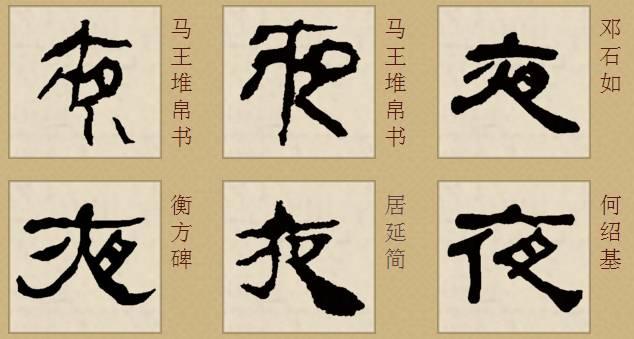 夜 马王堆帛书
夜 马王堆帛书
夜 邓石如
夜 衡方碑
夜 居延简
夜 何绍基